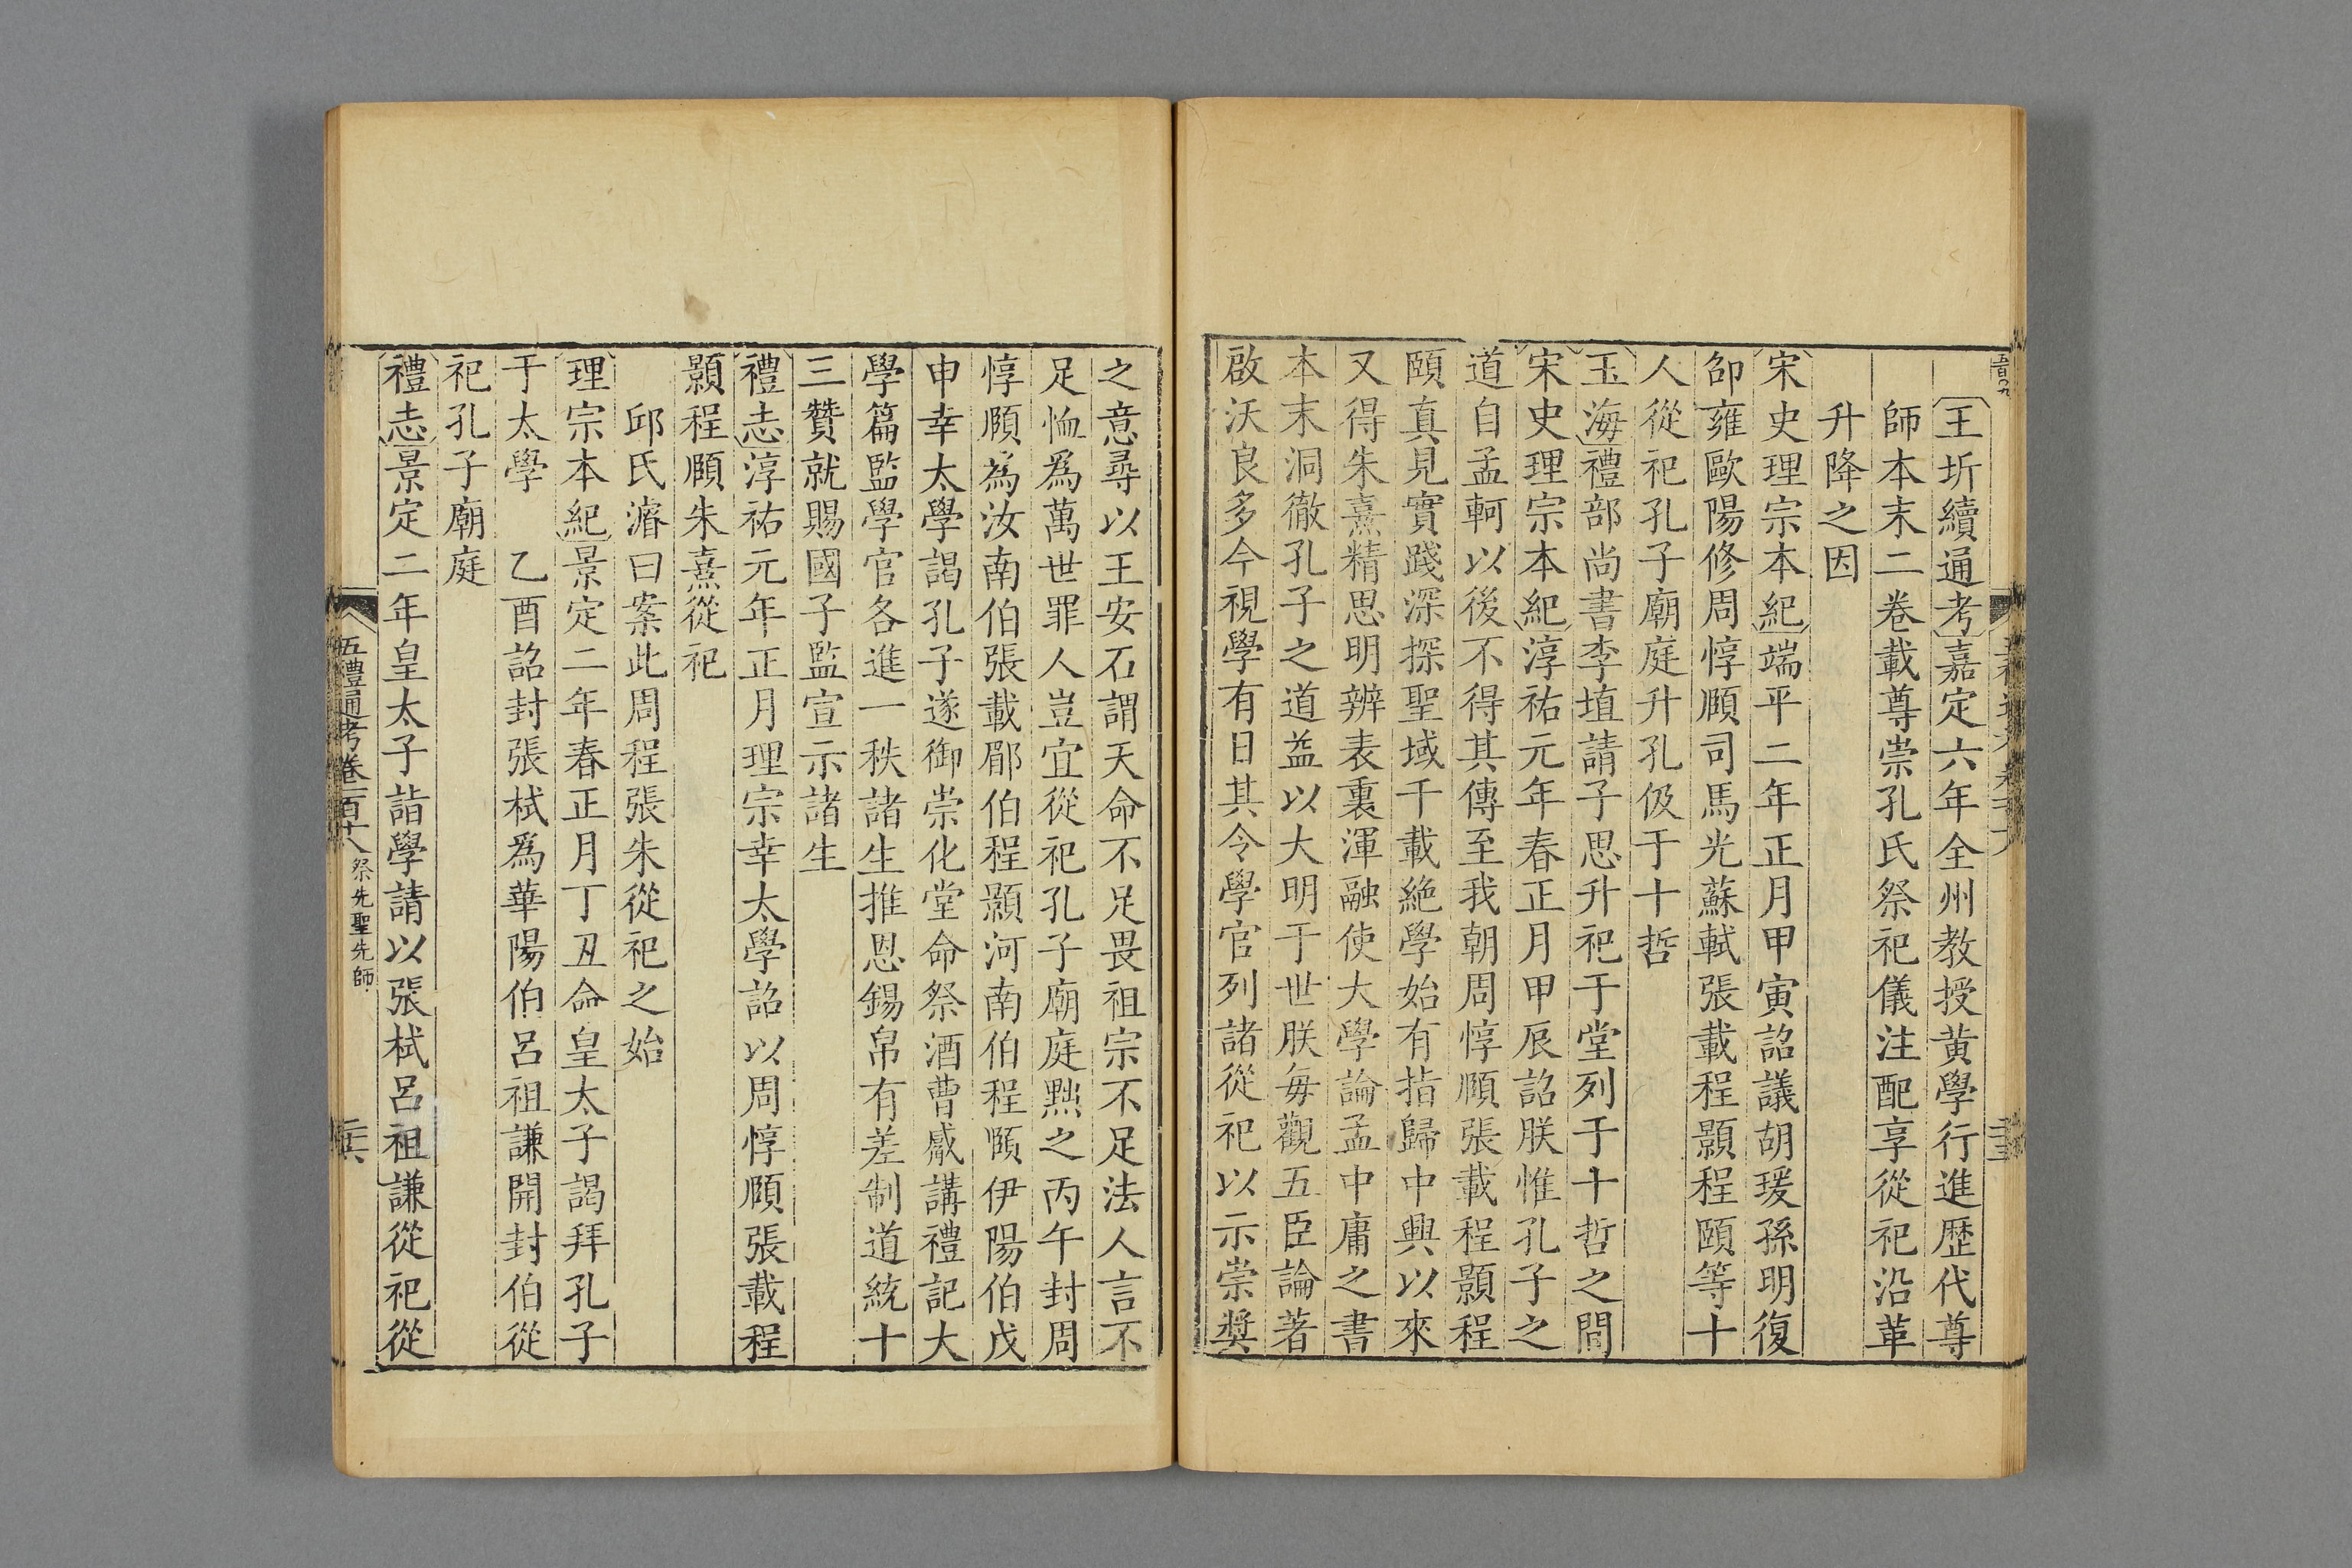 王圻續通考嘉定六年全州教授黄學行進歷代尊
師本末二卷載尊崇孔氏祭祀儀注配享從祀沿革
升降之因
宋史理宗本紀端平二年正月甲寅詔議胡瑗孫明復
邵雍歐陽修周惇頤司馬光蘇軾張載程顥程頤等十
人從祀孔子廟庭升孔伋于十哲
玉海禮部尚書李埴請子思升祀于堂列于十哲之間
宋史理宗本紀淳祐元年春正月甲辰詔朕惟孔子之
道自孟軻以後不得其傳至我朝周惇頤張載程顥程
頤真見實踐深探聖域千載絶學始有指歸中興以來
又得朱熹精思明辨表裏渾融使大學論孟中庸之書
本末洞徹孔子之道益以大明于世朕每觀五臣論著
啟沃良多今視學有日其令學官列諸從祀以示崇奬
之意尋以王安石謂天命不足畏祖宗不足法人言不
足恤爲萬世罪人豈宜從祀孔子廟庭黜之丙午封周
惇頤爲汝南伯張載郿伯程顥河南伯程頤伊陽伯戊
申幸太學謁孔子遂御崇化堂命祭酒曹觱講禮記大
學篇監學官各進一秩諸生推恩錫帛有差制道統十
三贊就賜國子監宣示諸生
禮志淳祐元年正月理宗幸太學詔以周惇頤張載程
顥程頤朱熹從祀
邱氏濬曰案此周程張朱從祀之始
理宗本紀景定二年春正月丁丑命皇太子謁拜孔子
于太學　乙酉詔封張栻爲華陽伯呂祖謙開封伯從
祀孔子廟庭
禮志景定二年皇太子詣學請以張栻呂祖謙從祀從
五禮通考卷一百十八 祭先聖先師